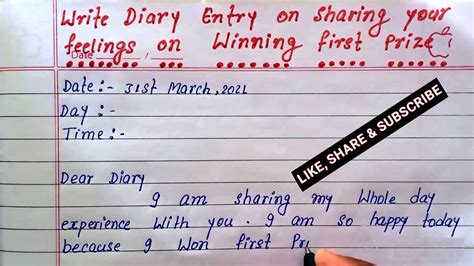 Write Diary Entry on Sharing your
feelings on Winning first Prize
Date
Date:- 31st March, 2021
Day:-
Time:-
LIKE, SHARE & SUBSCRIBE
Dear Diary
I am sharing my Whole day
experience With you. I am so happy today
because I Won first Pr